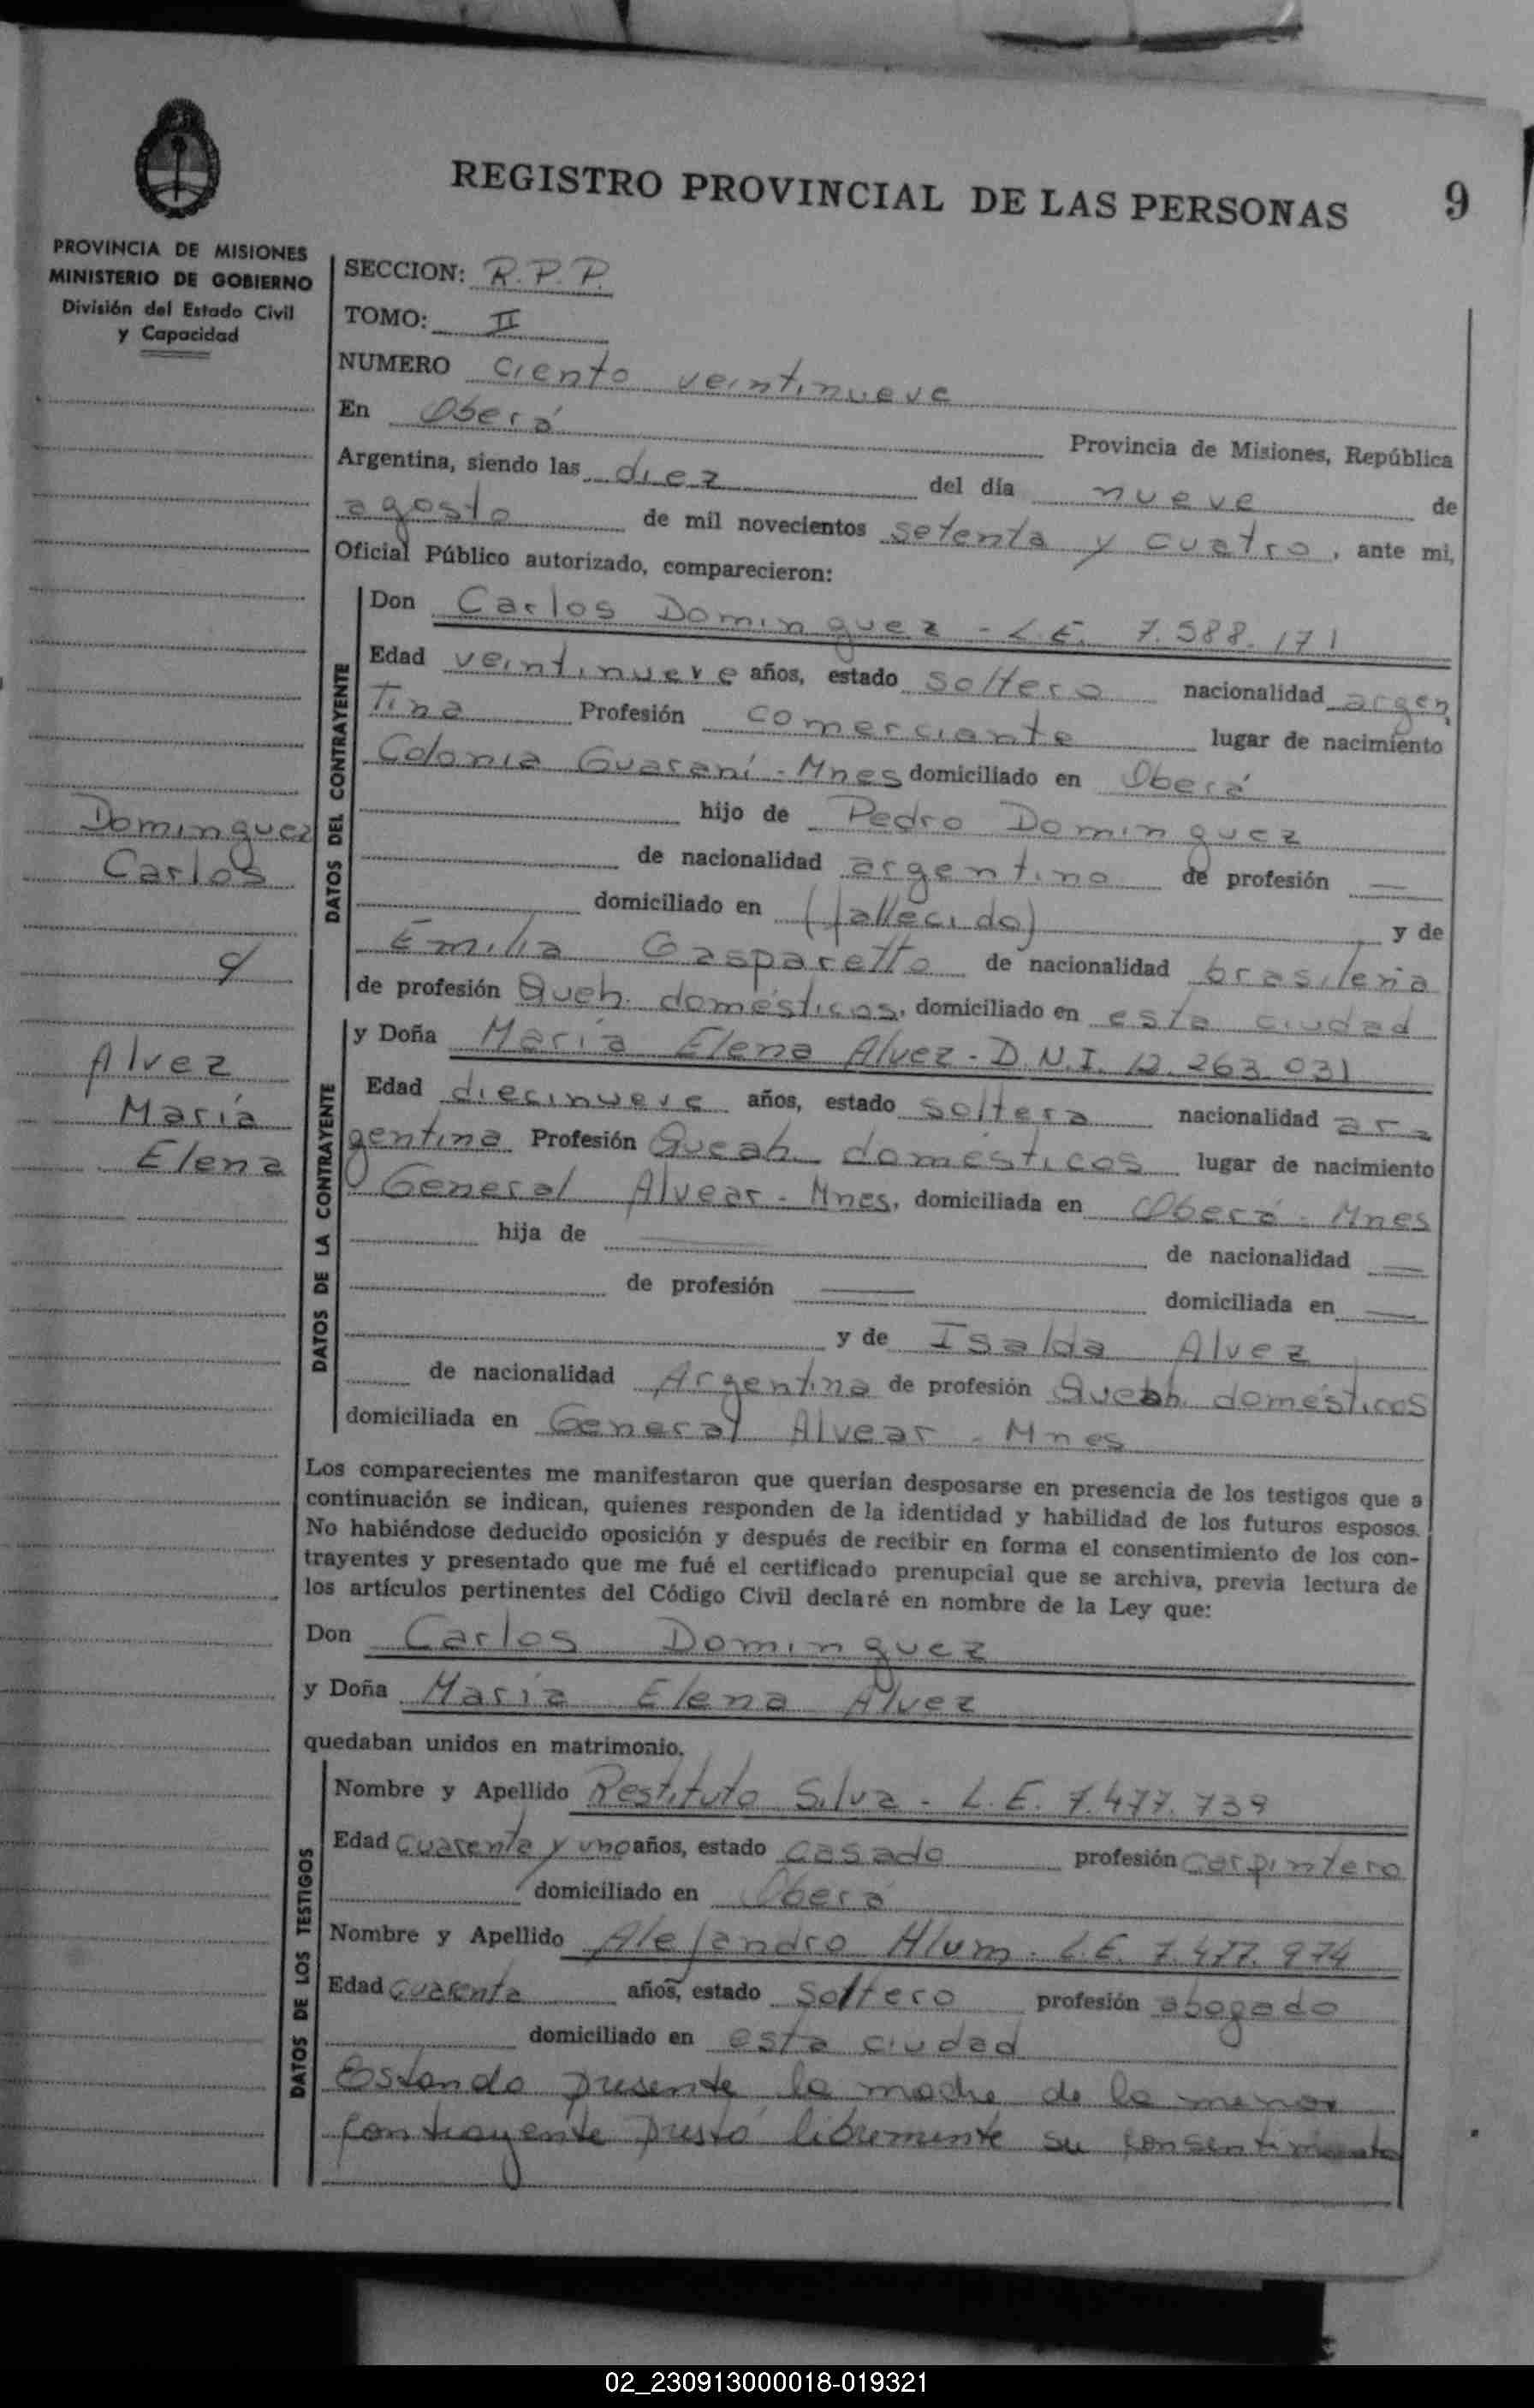 REGISTRO PROVINCIAL DE LAS PERSONAS 9
PROVINCIA DE MISIONES
MINISTERIO DE GOBIERNO
División del Estado Civil
y Capacidad
SECCION: R.P.P.
TOMO: II
NUMERO ciento veintinueve
En Oberá Provincia de Misiones, República
Argentina, siendo las diez del día nueve de
agosto de mil novecientos setenta y cuatro, ante mi,
Oficial Público autorizado, comparecieron:
DATOS DEL CONTRAYENTE
Don Carlos Dominguez - L.E. 7.588.171
Edad veintinueve años, estado soltero nacionalidad argen
tina Profesión comerciante lugar de nacimiento
Colonia Guaraní - Mnes domiciliado en Oberá
hijo de Pedro Dominguez
de nacionalidad argentino de profesión —
domiciliado en (fallecido) y de
Emilia Gasparetto de nacionalidad brasileña
de profesión Queh. domésticos, domiciliado en esta ciudad
Dominguez
Carlos
c/
Alvez
María
Elena
DATOS DE LA CONTRAYENTE
y Doña María Elena Alvez - D.N.I. 12.263.031
Edad diecinueve años, estado soltera nacionalidad ar-
gentina Profesión Queah. domésticos lugar de nacimiento
General Alvear - Mnes, domiciliada en Oberá - Mnes
hija de — de nacionalidad —
de profesión — domiciliada en —
y de Isalda Alvez
de nacionalidad Argentina de profesión Queah. domésticos
domiciliada en General Alvear - Mnes
Los comparecientes me manifestaron que querían desposarse en presencia de los testigos que a
continuación se indican, quienes responden de la identidad y habilidad de los futuros esposos.
No habiéndose deducido oposición y después de recibir en forma el consentimiento de los con-
trayentes y presentado que me fué el certificado prenupcial que se archiva, previa lectura de
los artículos pertinentes del Código Civil declaré en nombre de la Ley que:
Don Carlos Dominguez
y Doña María Elena Alvez
quedaban unidos en matrimonio.
DATOS DE LOS TESTIGOS
Nombre y Apellido Restituto Silva - L.E. 7.477.739
Edad cuarenta y uno años, estado casado profesión carpintero
domiciliado en Oberá
Nombre y Apellido Alejandro Alum - L.E. 7.477.974
Edad cuarenta años, estado soltero profesión abogado
domiciliado en esta ciudad
Estando presente la madre de la menor
contrayente prestó libremente su consentimiento
02_230913000018-019321